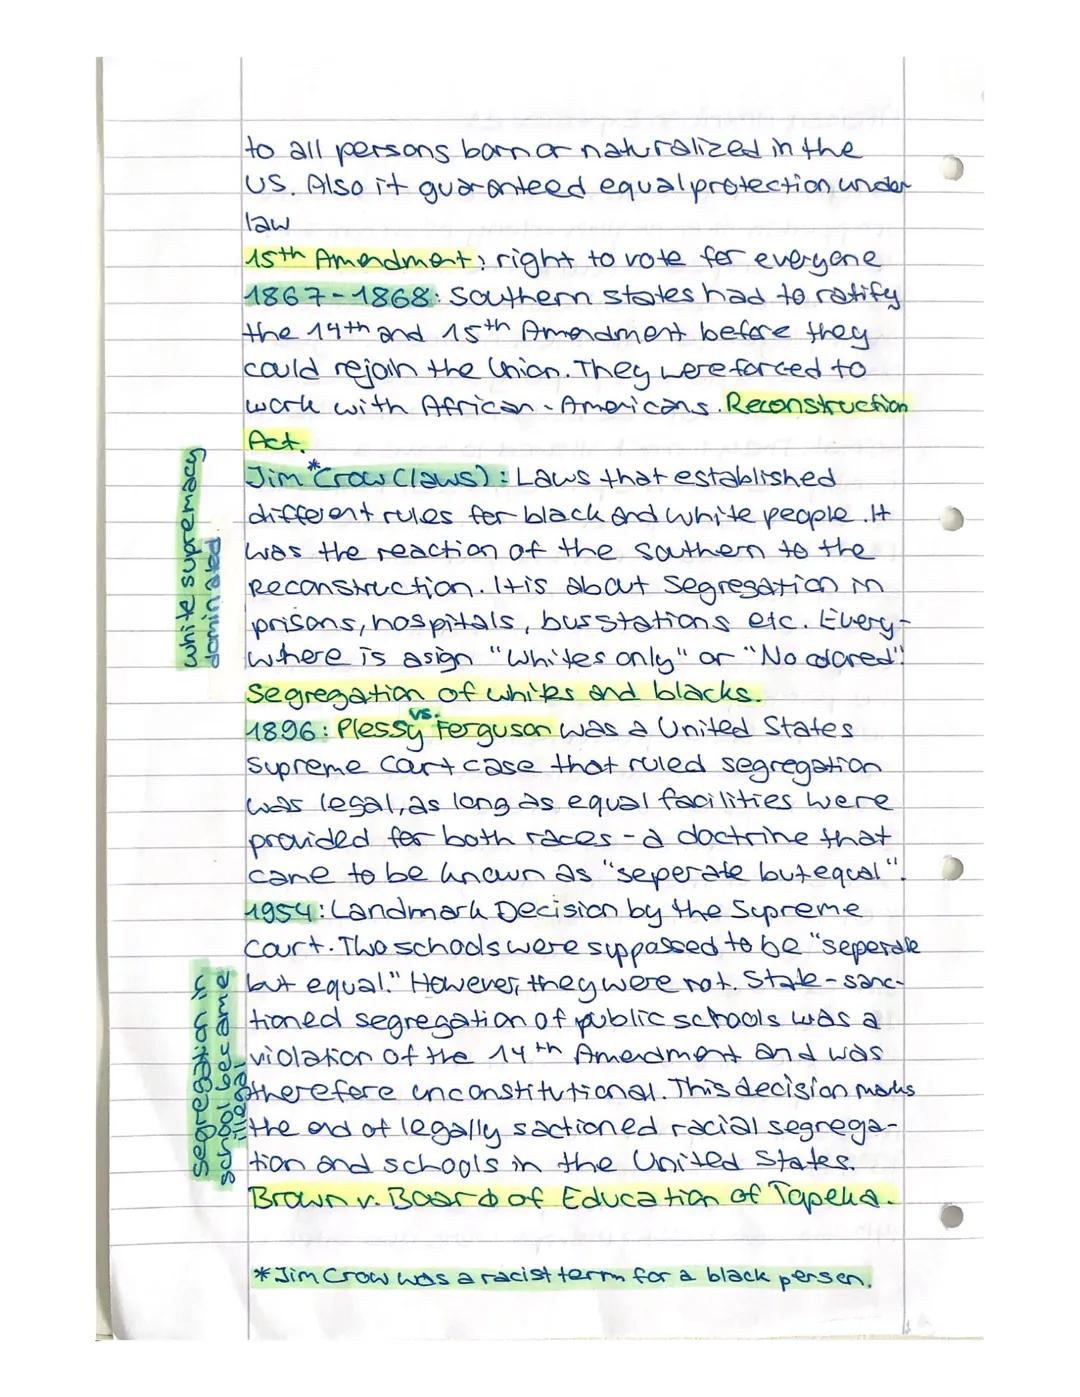 to all persons born or naturalized in the
US. Also it guaranteed equal protection under
law
15th Amendment: right to vote for everyone
1867-1868: Southern states had to ratify
the 14th and 15th Amendment before they
could rejoin the Union. They were forced to
work with African-Americans. Reconstruction
Act.
Jim* Crow (laws): Laws that established
different rules for black and white people. It
was the reaction of the southern to the
Reconstruction. It is about Segregation in
prisons, hospitals, busstations etc. Every-
where is a sign "Whites only" or "No colored"!
Segregation of whites and blacks.
white supremacy
dominated.
1896: Plessy vs. Ferguson was a United States
Supreme Court case that ruled segregation
was legal, as long as equal facilities were
provided for both races - a doctrine that
came to be known as "seperate but equal".
1954: Landmark Decision by the Supreme
Court. Two schools were supposed to be "seperate
but equal." However, they were not. State-sanc-
tioned segregation of public schools was a
violation of the 14th Amendment and was
therefore unconstitutional. This decision marks
the end of legally sactioned racial segrega-
tion and schools in the United States.
Brown v. Board of Education of Topeka.
segregation in
school became
illegal
*Jim Crow was a racist term for a black person.